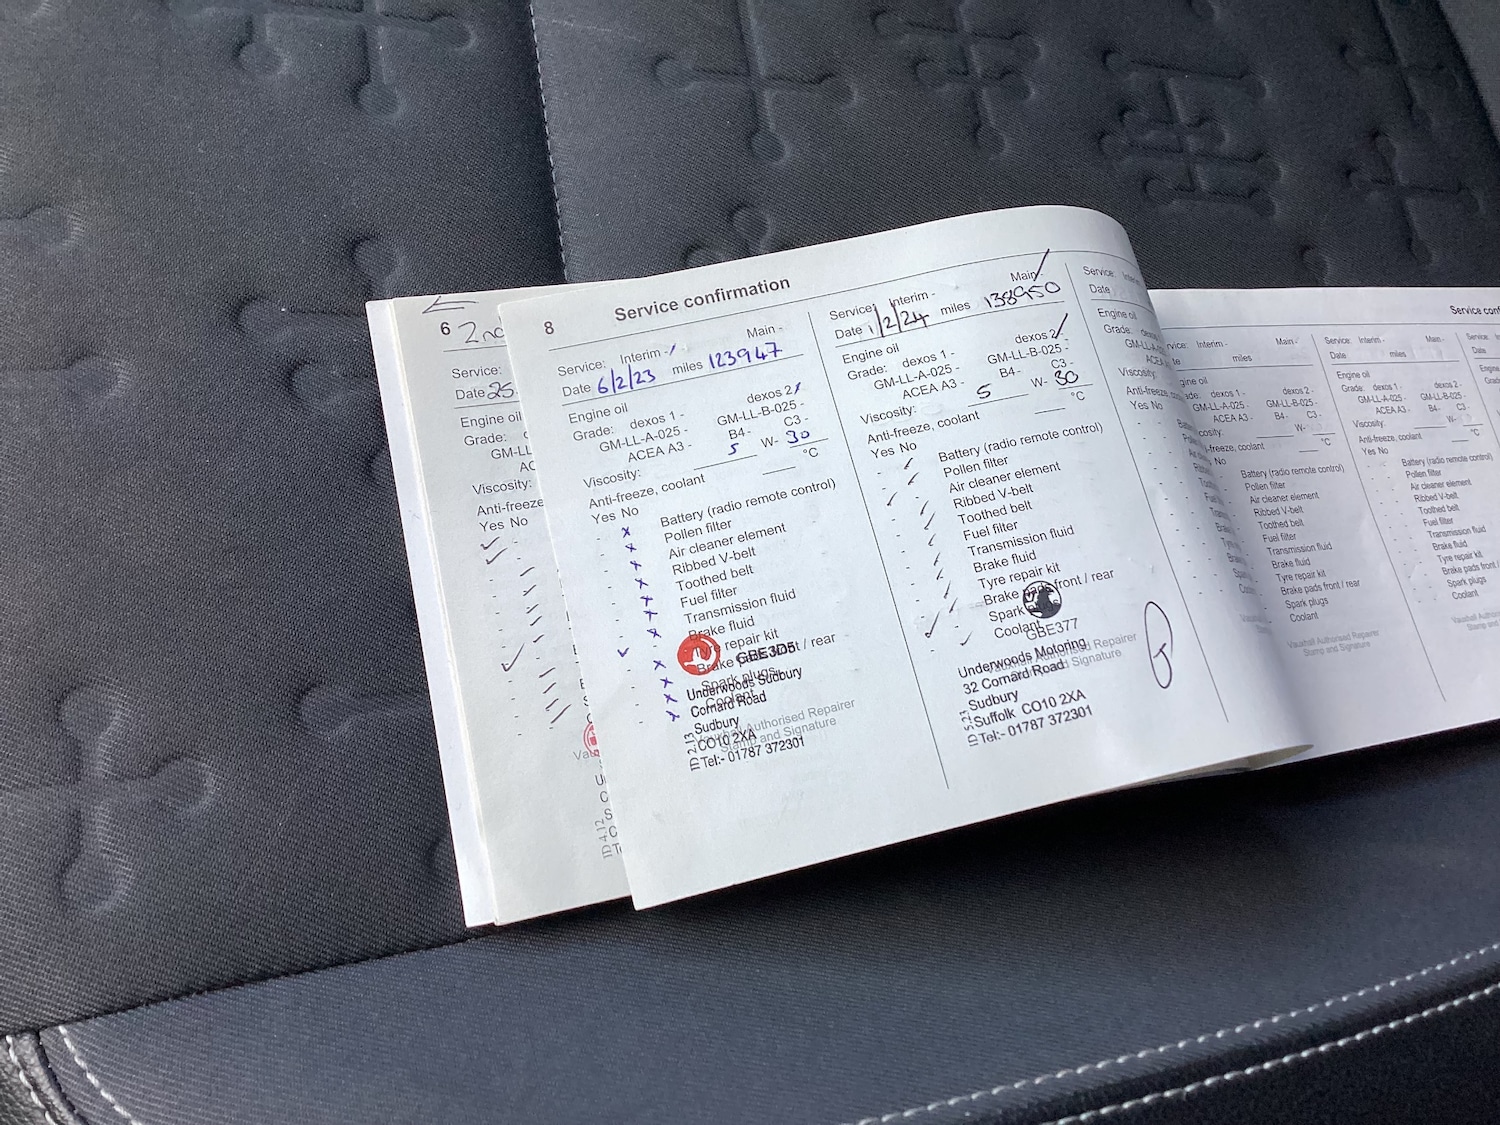 6 2nd
Service:
Date 25
Engine oil
Grade:
GM-LL
AC
Viscosity:
Anti-freeze
Yes No
ID 4.12
8 Service confirmation
Service: Interim - / Main -
Date 6/2/23 miles 123947
Engine oil
Grade: dexos 1 - dexos 2 /
GM-LL-A-025 - GM-LL-B-025 -
ACEA A3 - B4 - C3 -
Viscosity: 5 W- 30
Anti-freeze, coolant °C
Yes No
Battery (radio remote control)
Pollen filter
Air cleaner element
Ribbed V-belt
Toothed belt
Fuel filter
Transmission fluid
Brake fluid
Tyre repair kit
Brake pads front / rear
Spark plugs
Coolant
GBE3D5
Underwoods Sudbury
Cornard Road
Sudbury
CO10 2XA
Tel:- 01787 372301
Vauxhall Authorised Repairer
Stamp and Signature
Service: Interim - Main /
Date 1/2/24 miles 138950
Engine oil
Grade: dexos 1 - dexos 2 /
GM-LL-A-025 - GM-LL-B-025 -
ACEA A3 - B4 - C3 -
Viscosity: 5 W- 30
Anti-freeze, coolant °C
Yes No
Battery (radio remote control)
Pollen filter
Air cleaner element
Ribbed V-belt
Toothed belt
Fuel filter
Transmission fluid
Brake fluid
Tyre repair kit
Brake pads front / rear
Spark
Coolant
GBE377
Underwoods Motoring
32 Cornard Road
Sudbury
Suffolk CO10 2XA
Tel:- 01787 372301
Vauxhall Authorised Repairer
Stamp and Signature
Service:
Date
Engine oil
Grade:
Viscosity:
Anti-freeze
Yes No
Service conf
Interim - Main -
miles
GM-LL-A-025 - GM-LL-B-025 -
ACEA A3 - B4 - C3 -
W-
coolant °C
No
Battery (radio remote control)
Pollen filter
Air cleaner element
Ribbed V-belt
Toothed belt
Fuel filter
Transmission fluid
Brake fluid
Tyre repair kit
Brake pads front / rear
Spark plugs
Coolant
Vauxhall Authorised Repairer
Stamp and Signature
Service: Interim - Main -
Date miles
Engine oil
Grade: dexos 1 - dexos 2 -
GM-LL-A-025 - GM-LL-B-025 -
ACEA A3 - B4 - C3 -
Viscosity: W-
Anti-freeze, coolant °C
Yes No
Battery (radio remote control)
Pollen filter
Air cleaner element
Ribbed V-belt
Toothed belt
Fuel filter
Transmission fluid
Brake fluid
Tyre repair kit
Brake pads front /
Spark plugs
Coolant